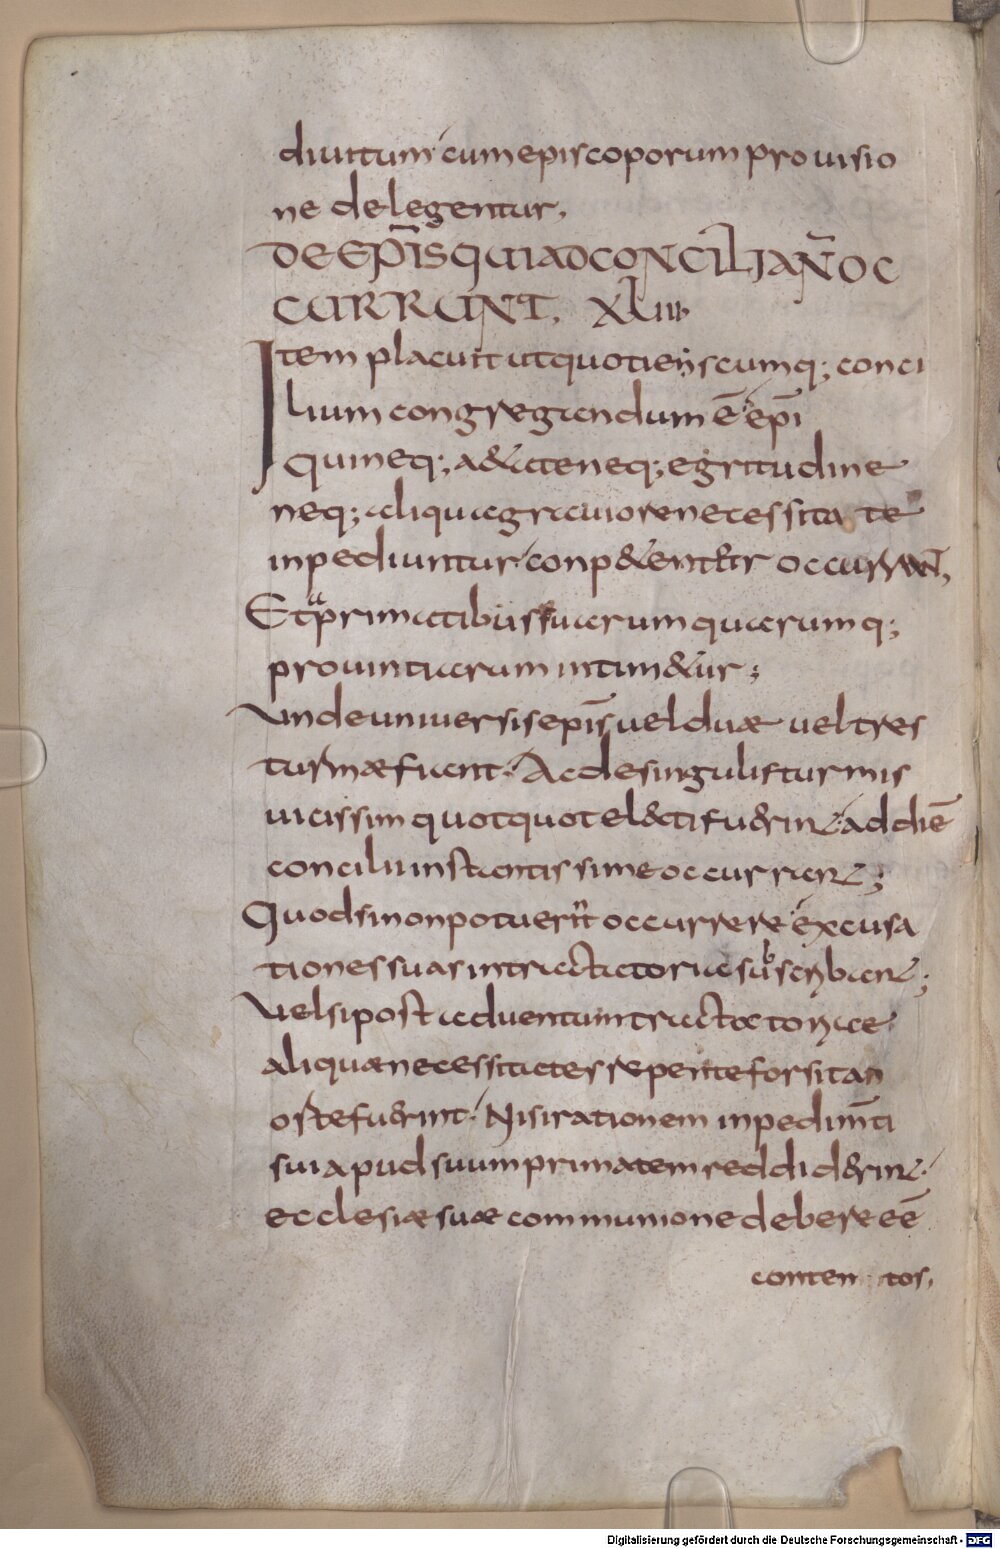 diuitum cum episcoporum prouisio
ne delegentur.
DE EP̄IS QUI AD CONCILIA N̄ OC
CURRUNT. XLIII.
Item placuit ut quotienscumq; conci
lium congregandum ē ep̄i
qui neq; aetate neq; egritudine
neq; aliqua grauiore necessitate
inpediuntur conpetenter occurrant.
Et primatibus suarum quarumq;
prouintiarum intimetur;
Vnde uniuersis ep̄is uel duae uel tres
turmae fuerint. Ac de singulis turmis
uicissim quotquot electi fuerint ad diē
concilii instantissime occurrant;
Quod si non potuerint occurrere excusa
tiones suas in tractatoria subscribant;
Vel si post aduentum tractatoriae
aliquae necessitates repente forsitan
ortae fuerint. Nisi rationem inpedim̄ti
sui apud suum primatem reddiderint.
ecclesiae suae communione debere eē
contentos.
Digitalisierung gefördert durch die Deutsche Forschungsgemeinschaft - DFG